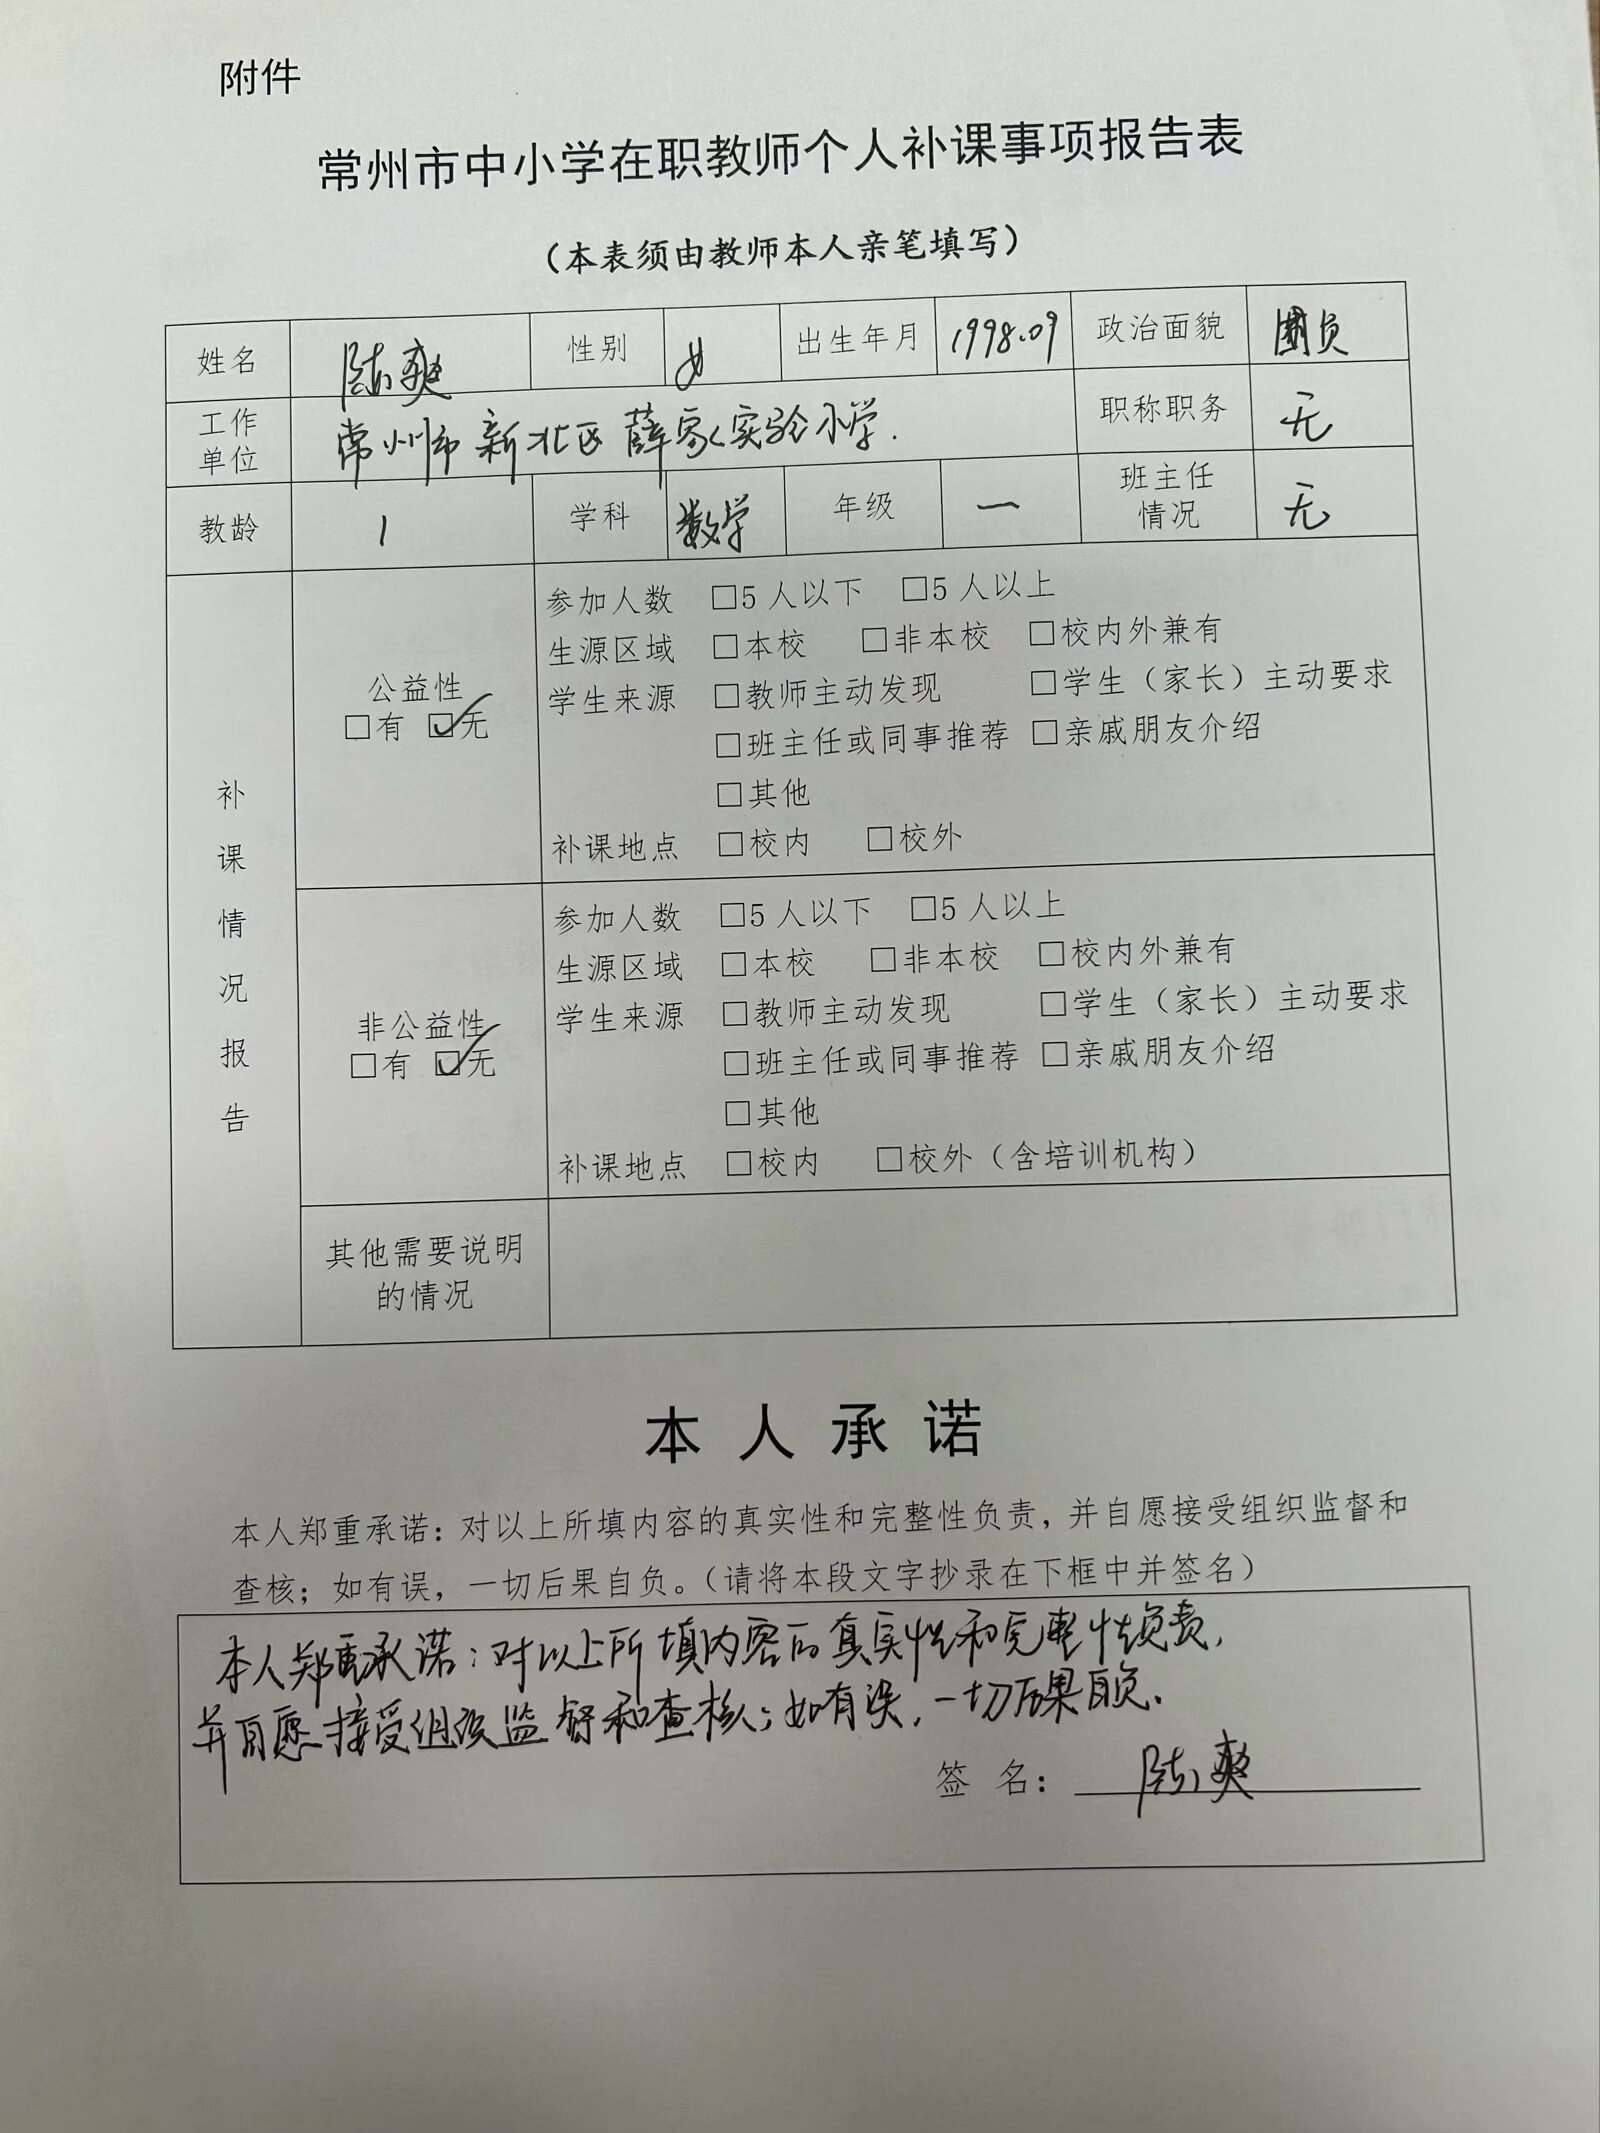 附件
常州市中小学在职教师个人补课事项报告表
（本表须由教师本人亲笔填写）
姓名 陈爽 性别 女 出生年月 1998.09 政治面貌 团员
工作单位 常州市新北区薛家实验小学. 职称职务 无
教龄 1 学科 数学 年级 一 班主任情况 无
补课情况报告
公益性
□有 ☑无
参加人数 □5人以下 □5人以上
生源区域 □本校 □非本校 □校内外兼有
学生来源 □教师主动发现 □学生（家长）主动要求
□班主任或同事推荐 □亲戚朋友介绍
□其他
补课地点 □校内 □校外
非公益性
□有 ☑无
参加人数 □5人以下 □5人以上
生源区域 □本校 □非本校 □校内外兼有
学生来源 □教师主动发现 □学生（家长）主动要求
□班主任或同事推荐 □亲戚朋友介绍
□其他
补课地点 □校内 □校外（含培训机构）
其他需要说明
的情况
本人承诺
本人郑重承诺：对以上所填内容的真实性和完整性负责，并自愿接受组织监督和
查核；如有误，一切后果自负。（请将本段文字抄录在下框中并签名）
本人郑重承诺：对以上所填内容的真实性和完整性负责，
并自愿接受组织监督和查核；如有误，一切后果自负.
签 名： 陈爽